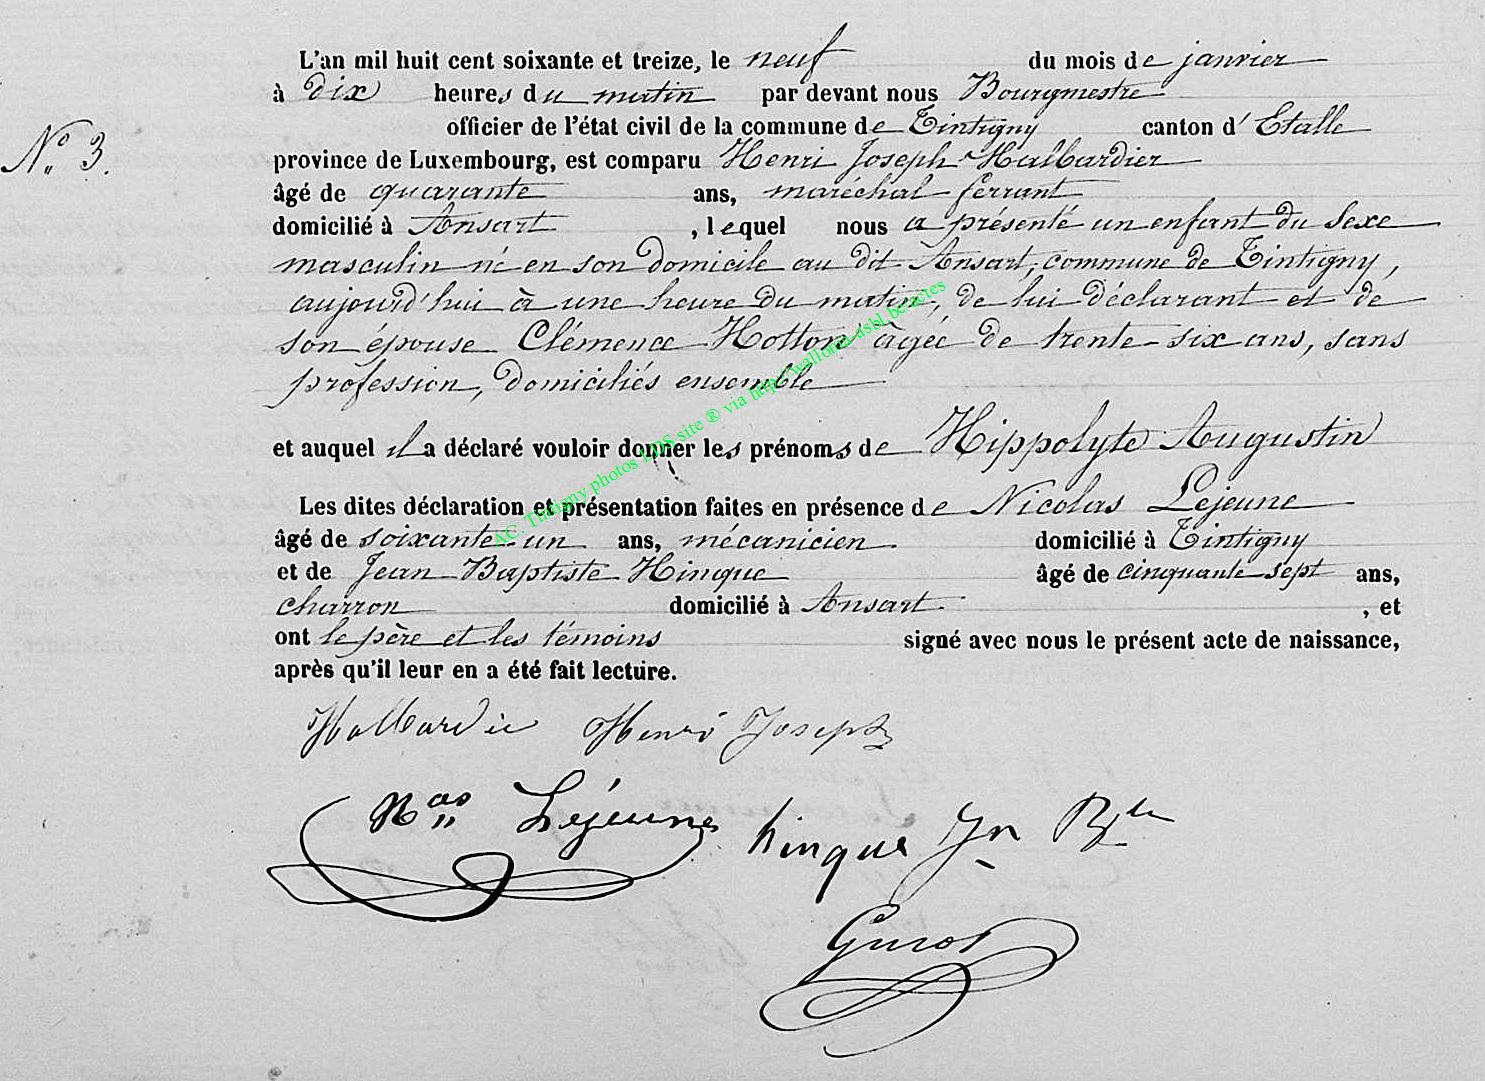 L'an mil huit cent soixante et treize, le neuf du mois de janvier
à dix heures du matin par devant nous Bourgmestre
officier de l'état civil de la commune de Tintigny canton d'Etalle
N° 3. province de Luxembourg, est comparu Henri Joseph Halbardier
âgé de quarante ans, maréchal ferrant
domicilié à Ansart, lequel nous a présenté un enfant du sexe
masculin né en son domicile au dit Ansart, commune de Tintigny,
aujourd'hui à une heure du matin, de lui déclarant et de
son épouse Clémence Hotton âgée de trente-six ans, sans
profession, domiciliés ensemble
et auquel il a déclaré vouloir donner les prénoms de Hippolyte Augustin
Les dites déclaration et présentation faites en présence de Nicolas Lejeune
âgé de soixante-un ans, mécanicien domicilié à Tintigny
et de Jean-Baptiste Hinque âgé de cinquante sept ans,
charron domicilié à Ansart, et
ont le père et les témoins signé avec nous le présent acte de naissance,
après qu'il leur en a été fait lecture.
Halbardie Henri Joseph
Nas Lejeune hinque Jn Bte
AC. Tintigny photos LDS site ® via http://wallonia-asbl.be/actes